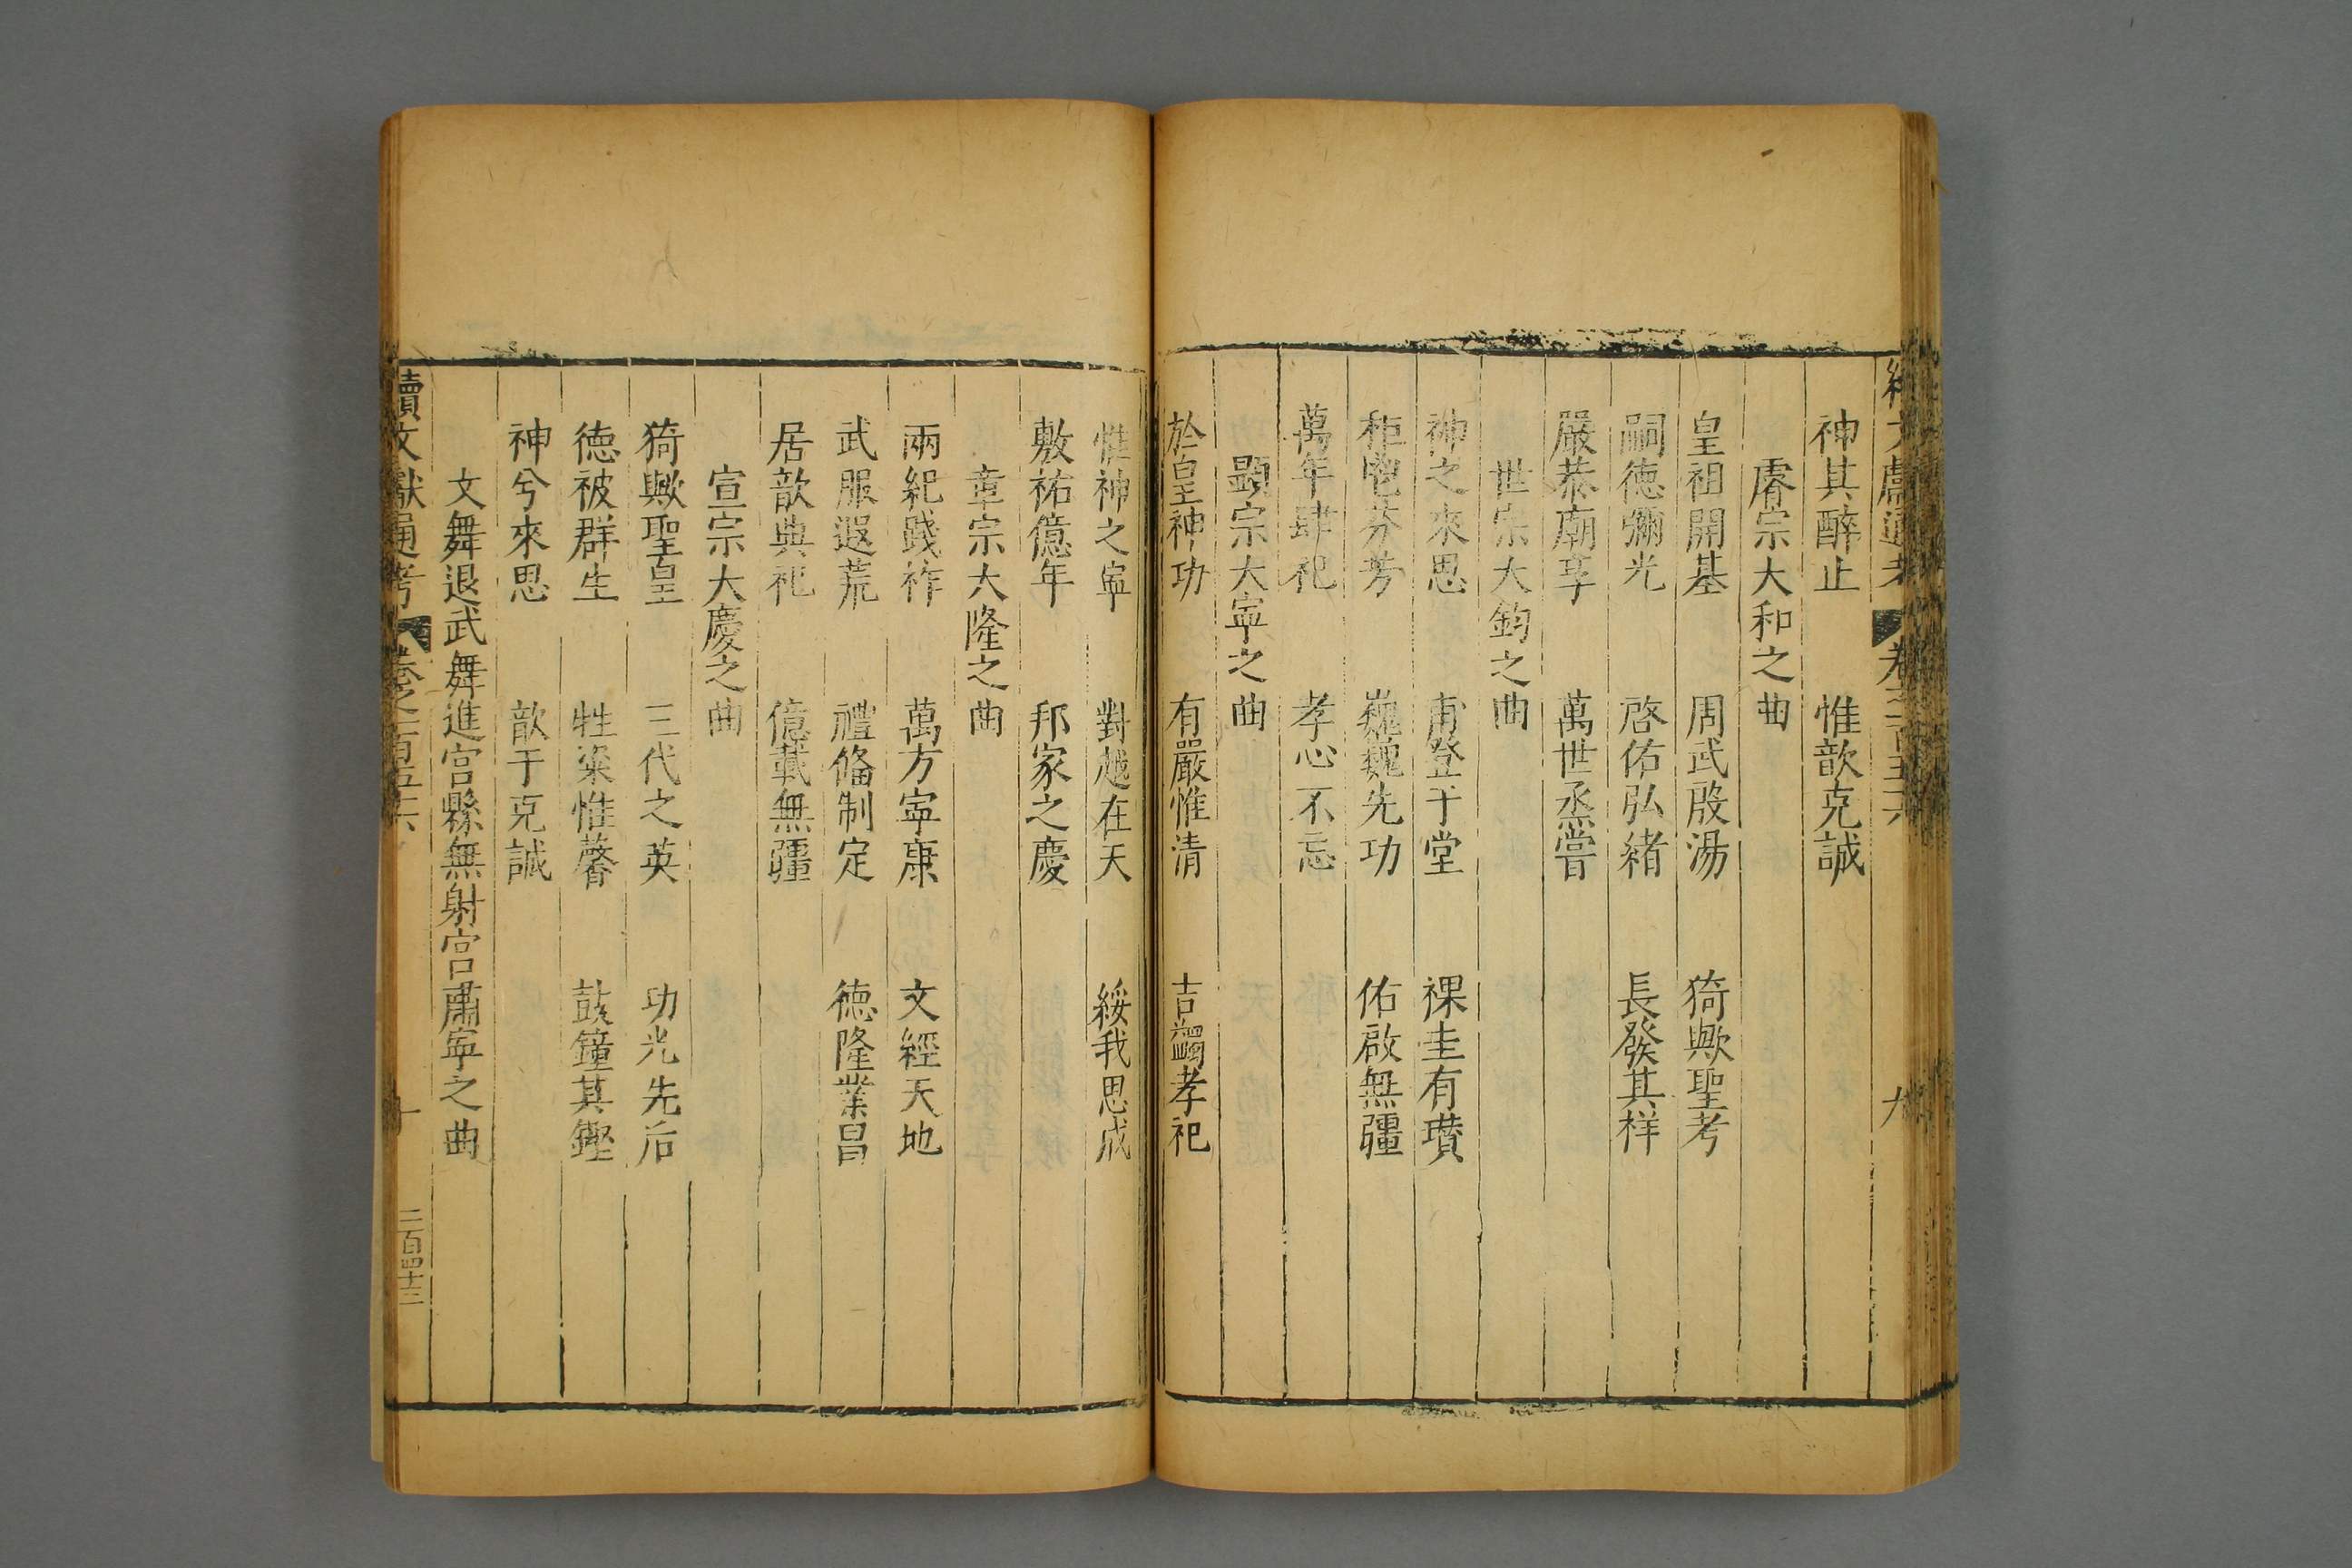 續文獻通考 卷之一百五十六 九
神其醉止 惟歆克誠
睿宗大和之曲
皇祖開基 周武殷湯 猗歟聖考
嗣德彌光 啓佑弘緒 長發其祥
嚴恭廟享 萬世烝嘗
世宗大鈞之曲
神之來思 甫登于堂 祼圭有瓚
秬鬯芬芳 巍巍先功 佑啟無疆
萬年肆祀 孝心不忘
顯宗大寧之曲
於皇神功 有嚴惟清 吉蠲孝祀
惟神之寧 對越在天 綏我思成
敷祐億年 邦家之慶
章宗大隆之曲
兩紀踐祚 萬方寧康 文經天地
武服遐荒 禮偹制定 德隆業昌
居歆典祀 億載無疆
宣宗大慶之曲
猗歟聖皇 三代之英 功光先后
德被群生 牲粢惟馨 鼓鐘其鏗
神兮來思 歆于克誠
文舞退武舞進宮縣無射宮肅寧之曲
續文獻通考 卷之一百五十六 十 二百四十三